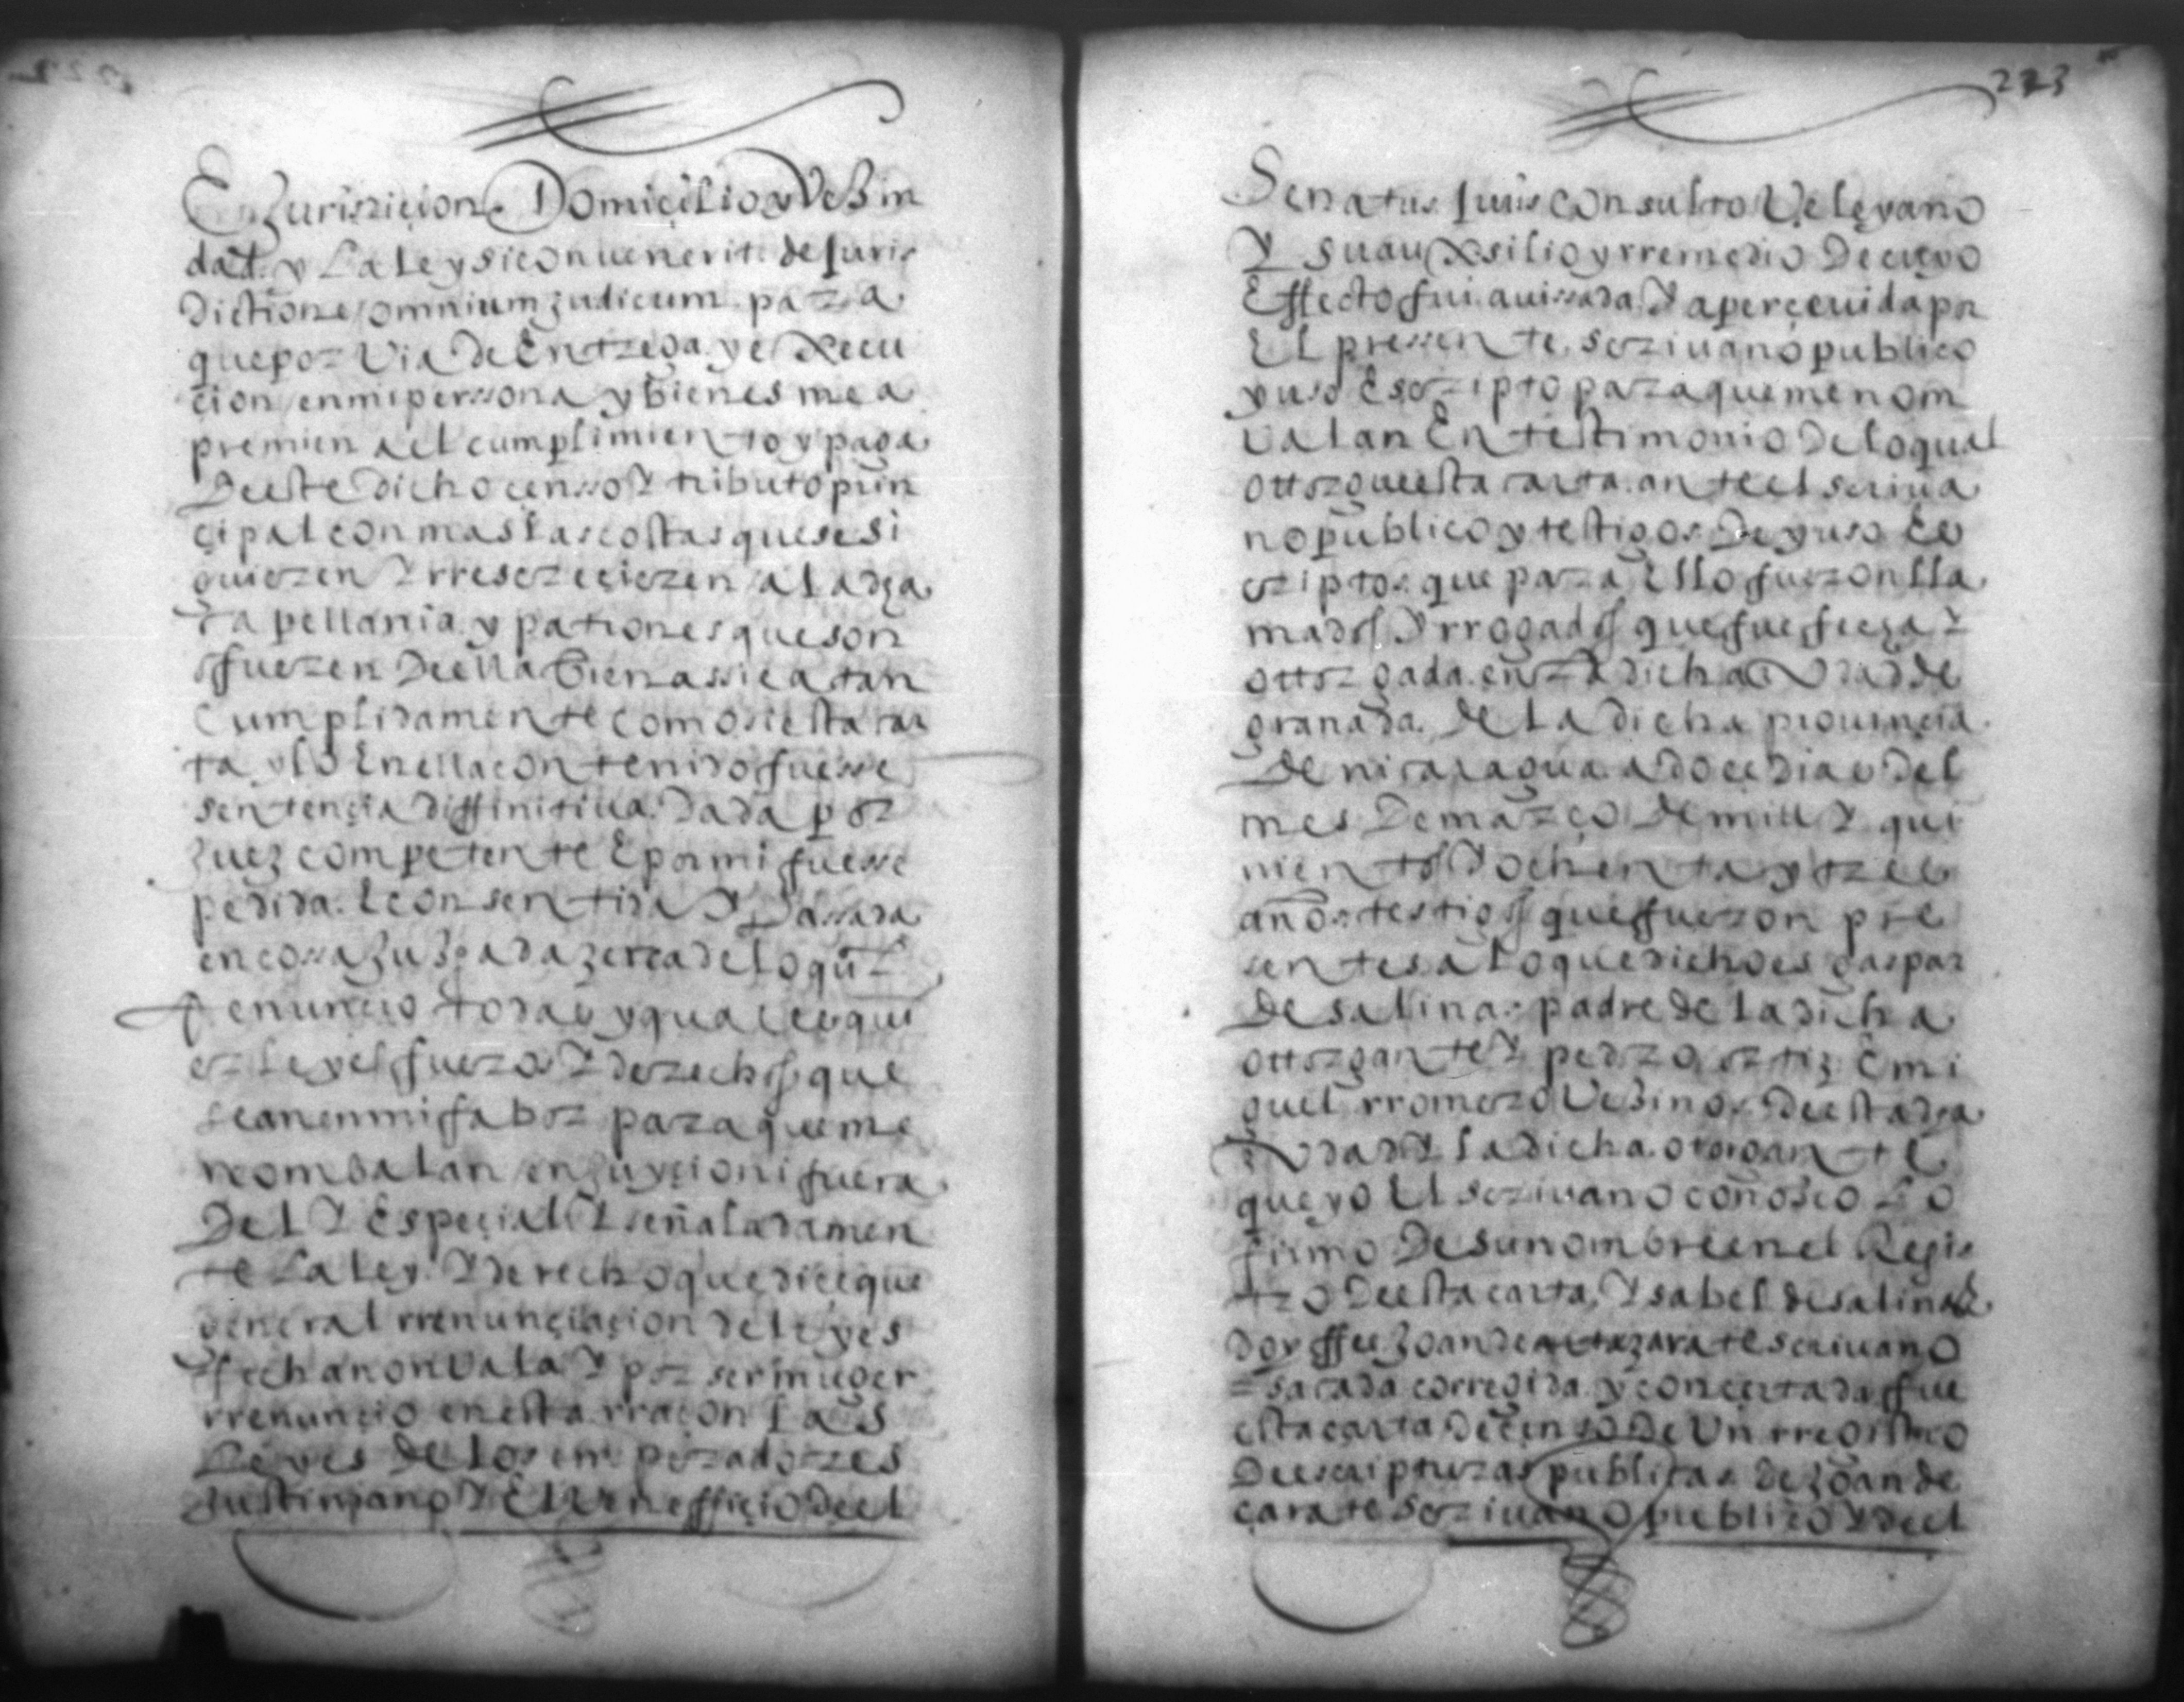 En Jurisdiçion Domiçilio y Vezin
dad y La ley si convenerit de Juris
dictione omnium judicum para
que por via de Entrega y exsecu
çion en mi perssona y bienes me a
premien a el cumplimiento y paga
De este dicho censso y tributo prin
çipal con mas las costas que se si
guieren y rrescreçieren a la dha
Capellania y patrones que son
o fueren De ella bien assi e a tan
Cumplidamente como si esta car
ta y lo En ella contenido fuesse
sentençia diffinitiva Dada por
Juez competente E por mi fuesse
pedida E consentida y Passada
en cossa Juzgada zerca de lo qual
Renunçio todas y qualesqui
er leyes fueros y derechos que
sean en mi fabor para que me
non balan en Juyçio ni fuera
Del y Espeçial y señaladamen
te La ley y derecho que dice que
general rrenunçiaçion de leyes
ffecha non vala y por ser muger
rrenunçio en esta rraçon las
Leyes de los emperadores
Justiniano y El beneffiçio de el
223
Senatus Juis consulto Veleyano
y su auxsilio y rremedio De cuyo
Effecto fui avissada y aperçevida por
El pressente scrivano publico
yuso Escripto para que me nom
valan En testimonio De lo qual
ottorgue esta carta ante el scriva
no publico y testigos De yuso Es
criptos que para Ello fueron lla
mados y rrogados que fue fecha y
ottorgada en la dicha ciudad de
granada De la Dicha provinçia
De nicaragua a doçe dias Del
mes De março De mill y qui
nientos y ochenta y tres
años testigos que ffueron pre
sentes a lo que dicho es gaspar
De salinas padre de la dicha
ottorgante y pedro ortiz E mi
guel rromero Vezinos De esta dha
ciudad y la dicha otorgante
que yo El scrivano conosco Lo
firmo De su nombre en el Regis
tro De esta carta, ysabel de salinas
doy ffee Joan de artaza rate scrivano
= sacada corregida y concertada ffue
esta carta De çenso De Un rregistro
De escripturas publicas de Joan de
çarate scrivano publico y de el